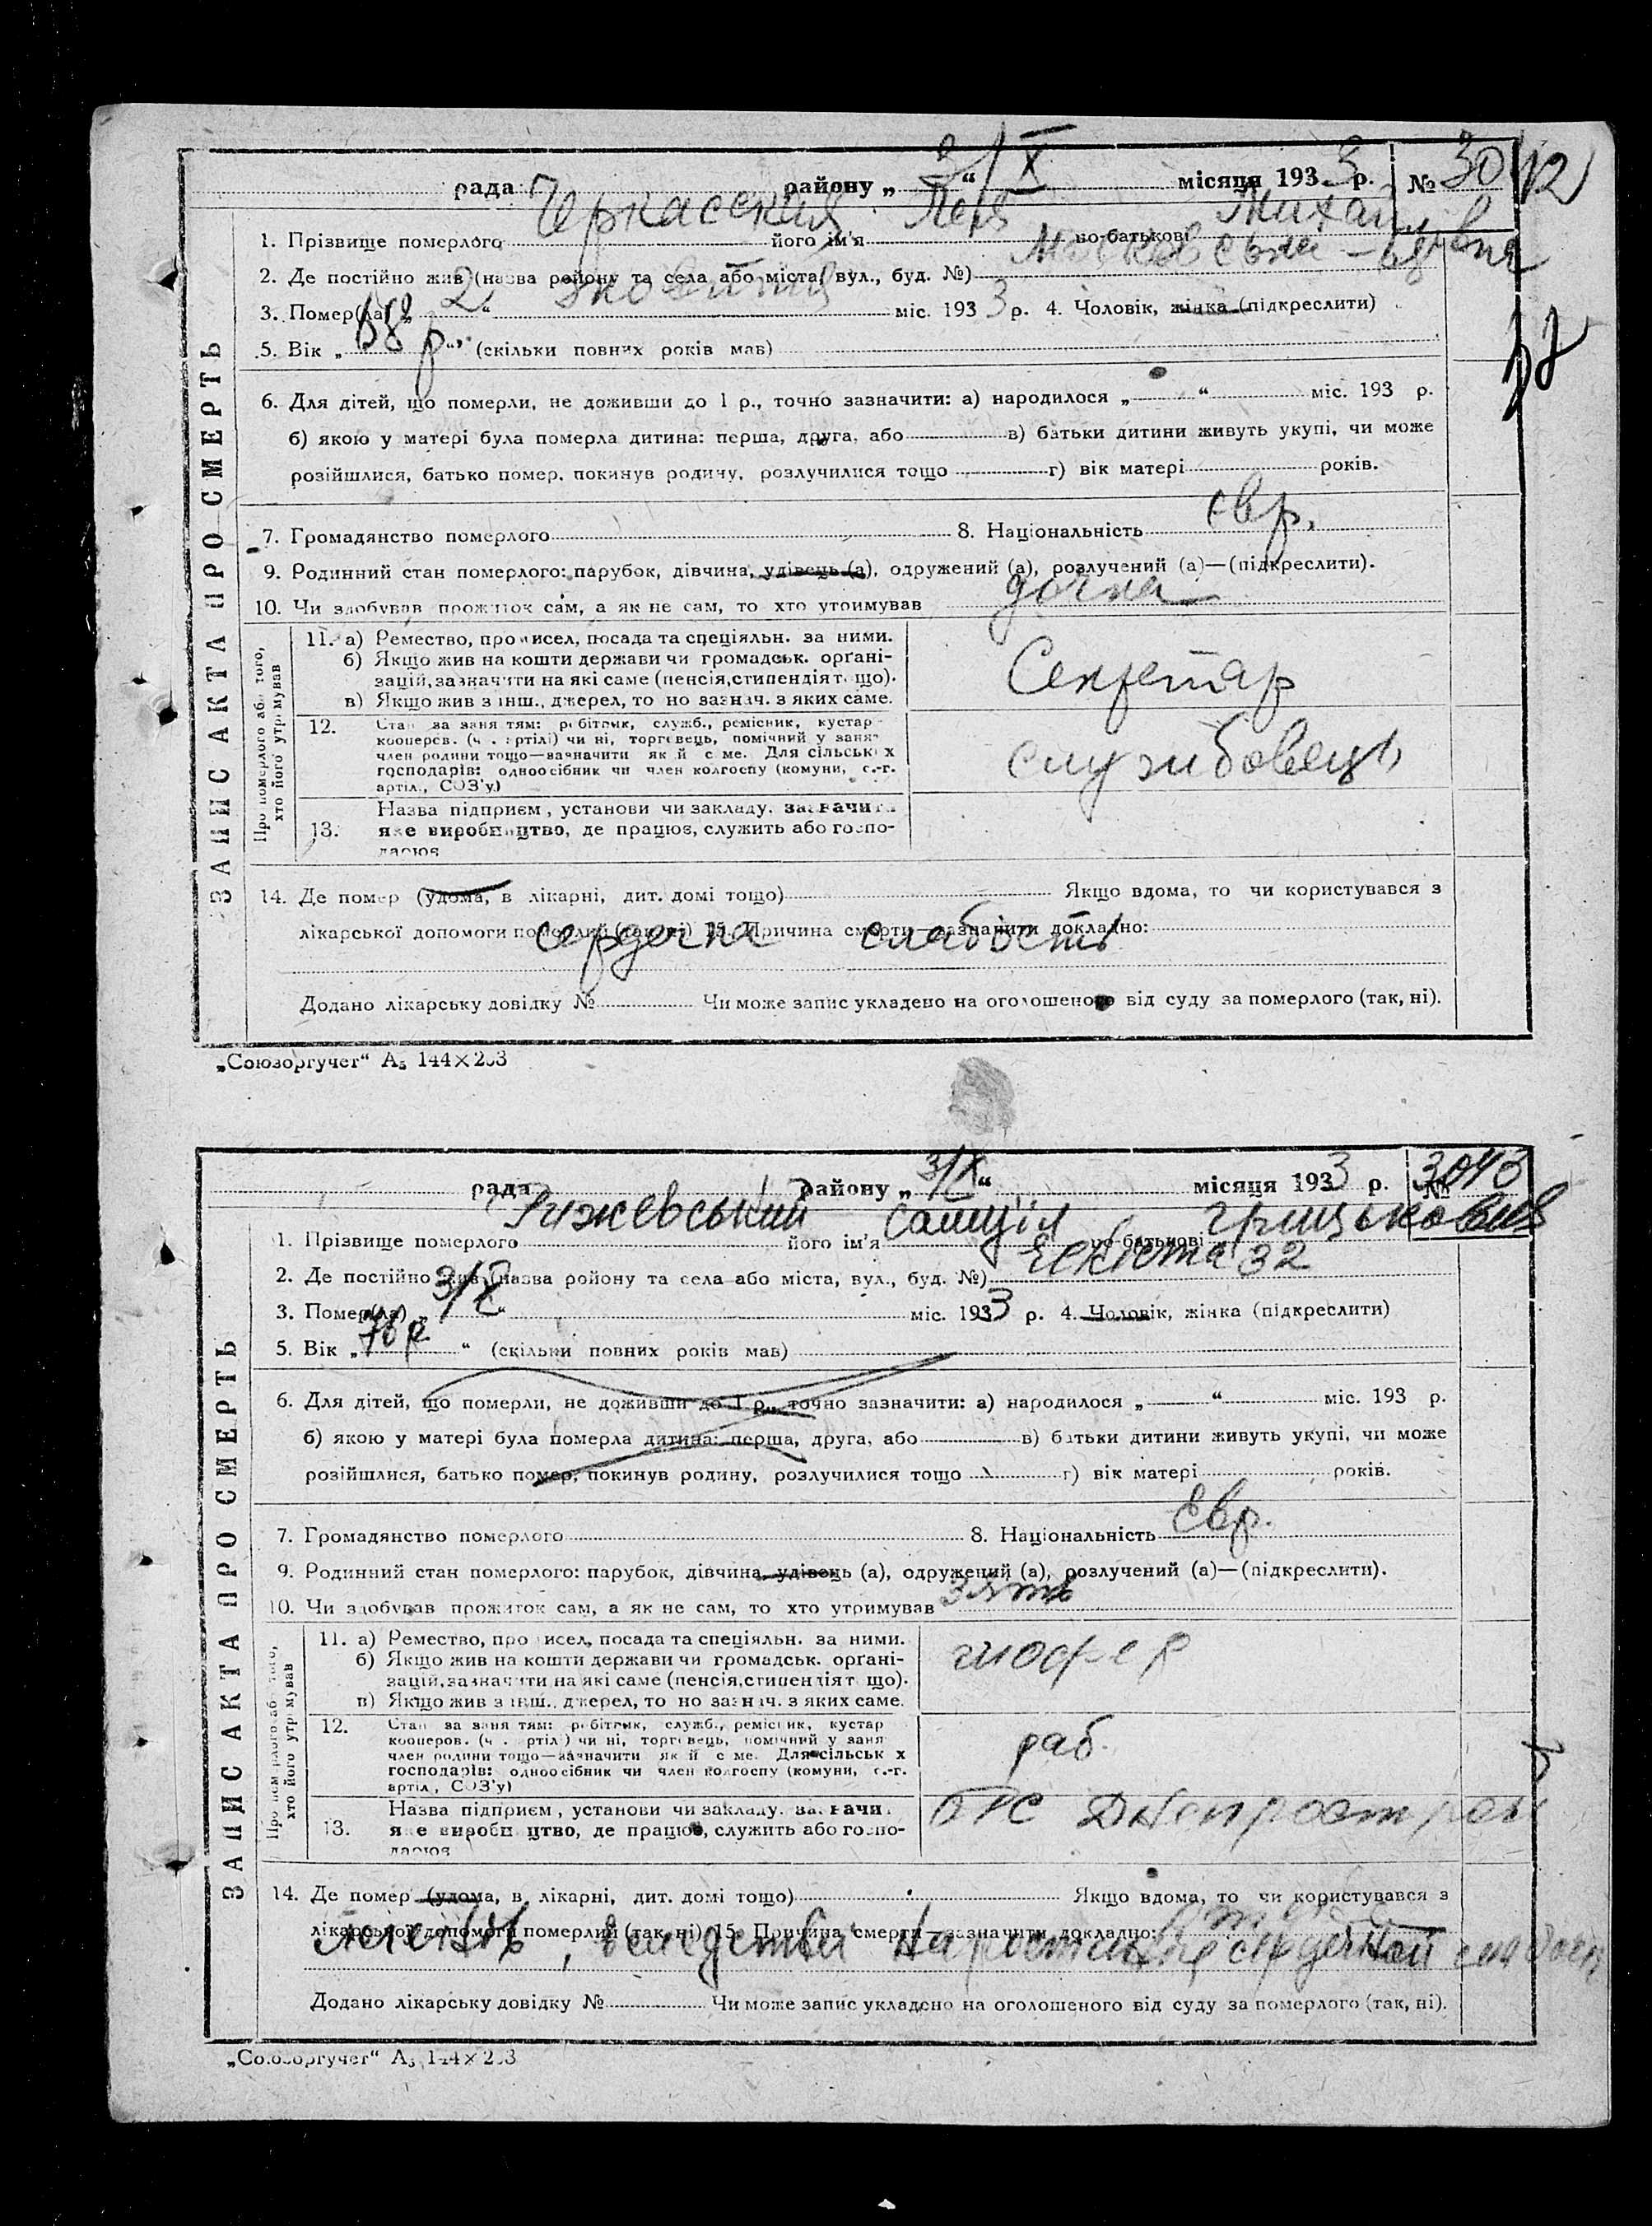 рада району „ 3/X “ місяця 1933 р. № 3042
Черкаськая Лея Михайлівна
1. Прізвище померлого його ім'я по батькові
2. Де постійно жив (назва району та села або міста, вул., буд. №)
3. Помер(ла) „ 2 “ жовтня міс. 1933 р. 4. Чоловік, жінка (підкреслити)
5. Вік „ 68 р “ (скільки повних років мав)
6. Для дітей, що померли, не доживши до 1 р., точно зазначити: а) народилося „ “ міс. 193 р.
б) якою у матері була померла дитина: перша, друга, або в) батьки дитини живуть укупі, чи може
розійшлися, батько помер, покинув родину, розлучилися тощо г) вік матері років.
7. Громадянство померлого 8. Національність євр.
9. Родинний стан померлого: парубок, дівчина, удівець (а), одружений (а), розлучений (а)—(підкреслити).
10. Чи здобував прожиток сам, а як не сам, то хто утримував дочка
ЗАПИС АКТА ПРО СМЕРТЬ
Про померлого або того, хто його утримував
11. а) Ремество, промисел, посада та спеціяльн. за ними.
б) Якщо жив на кошти держави чи громадськ. орґані-
зацій, зазначити на які саме (пенсія, стипендія т. що).
в) Якщо жив з інш., джерел, то но зазнач. з яких саме.
Секретар
12. Стан за заняттям: робітник, служб., ремісник, кустар
кооперов. (ч. артілі) чи ні, торговець, помічний у занят
член родини тощо—зазначити який саме. Для сільських
господарів: одноосібник чи член колгоспу (комуни, с.-г.
артіл., СОЗ'у)
службовець
13. Назва підприєм, установи чи закладу. зазначити
яке виробництво, де працює, служить або госпо-
дарює
14. Де помер (удома, в лікарні, дит. домі тощо) Якщо вдома, то чи користувався з
лікарської допомоги померлий (так, ні) 15. Причина смерти—зазначити докладно:
сердочна слабість
Додано лікарську довідку № Чи може запис укладено на оголошеного від суду за померлого (так, ні).
„Союзоргучет“ А5 144×203
рада району „ 3/X “ місяця 1933 р. № 3043
Рижевський Самуіл Грицькович
1. Прізвище померлого його ім'я по батькові
2. Де постійно жив (назва району та села або міста, вул., буд. №) 32
3. Помер(ла) „ 3/X “ міс. 1933 р. 4. Чоловік, жінка (підкреслити)
5. Вік „ 78 р “ (скільки повних років мав)
6. Для дітей, що померли, не доживши до 1 р., точно зазначити: а) народилося „ “ міс. 193 р.
б) якою у матері була померла дитина: перша, друга, або в) батьки дитини живуть укупі, чи може
розійшлися, батько помер, покинув родину, розлучилися тощо г) вік матері років.
7. Громадянство померлого 8. Національність Євр.
9. Родинний стан померлого: парубок, дівчина, удівець (а), одружений (а), розлучений (а)—(підкреслити).
10. Чи здобував прожиток сам, а як не сам, то хто утримував зять
ЗАПИС АКТА ПРО СМЕРТЬ
Про померлого або того, хто його утримував
11. а) Ремество, промисел, посада та спеціяльн. за ними.
б) Якщо жив на кошти держави чи громадськ. орґані-
зацій, зазначити на які саме (пенсія, стипендія т. що).
в) Якщо жив з інш., джерел, то но зазнач. з яких саме.
шофер
12. Стан за заняттям: робітник, служб., ремісник, кустар
кооперов. (ч. артілі) чи ні, торговець, помічний у занят
член родини тощо—зазначити який саме. Для сільських
господарів: одноосібник чи член колгоспу (комуни, с.-г.
артіл., СОЗ'у)
раб.
13. Назва підприєм, установи чи закладу. зазначити
яке виробництво, де працює, служить або госпо-
дарює
Днепрострой
14. Де помер (удома, в лікарні, дит. домі тощо) Якщо вдома, то чи користувався з
лікарської допомоги померлий (так, ні) 15. Причина смерти—зазначити докладно: отек
легких, вследствии сердечной слабости
Додано лікарську довідку № Чи може запис укладено на оголошеного від суду за померлого (так, ні).
„Союзоргучет“ А5 144×203